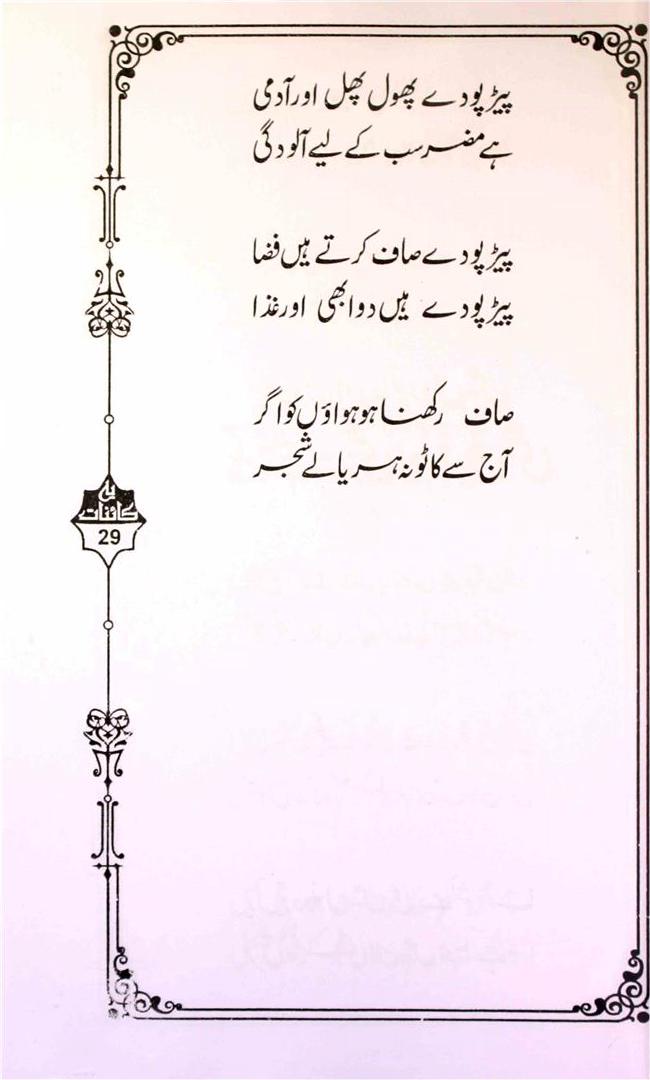 پیڑ پودے پھول پھل اور آدمی
ہے مضر سب کے لیے آلودگی
پیڑ پودے صاف کرتے ہیں فضا
پیڑ پودے ہیں دوا بھی اور غذا
صاف رکھنا ہو ہواؤں کو اگر
آج سے کاٹو نہ ہریالے شجر
یہ
کائنات
29